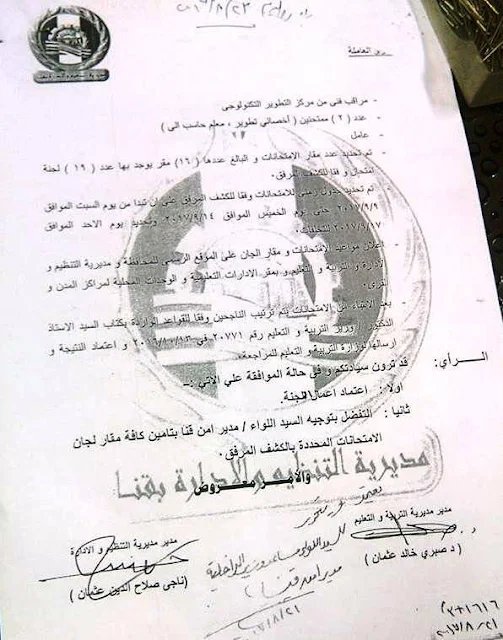 - مراقب فني من مركز التطوير التكنولوجى
- عدد ( ٢ ) ممتحنين ( أخصائي تطوير ، معلم حاسب الى )
- عامل
- تم تحديد عدد مقار الامتحانات و البالغ عددها (١٦) مقر يوجد بها عدد ( ١٩ ) لجنة
امتحان و فقا للكشف المرفق.
- تم تحديد جدول زمني للامتحانات وفقا للكشف المرفق على ان تبدا من يوم السبت الموافق
٢٠١٧/٩/٩ حتى يوم الخميس الموافق ٢٠١٧/٩/١٤ وتحديد يوم الاحد الموافق
٢٠١٧/٩/١٧ للتخلفات.
- اعلان مواعيد الامتحانات و مقار اللجان على الموقع الرسمي للمحافظة و مديرية التنظيم و
الادارة و التربية و التعليم و بمقر الادارات التعليمية و الوحدات المحلية لمراكز المدن و
القرى.
- بعد الانتهاء من الامتحانات يتم ترتيب الناجحين وفقا للقواعد الواردة بكتاب السيد الاستاذ
الدكتور / وزير التربية و التعليم رقم ٢٠٧٧١ في و اعتماد النتيجة و
ارسالها لوزارة التربية و التعليم للمراجعة.
الـــرأي: قد ترون سيادتكم و في حالة الموافقة علي الاتي :-
اولا : اعتماد اعمال اللجنة.
ثانيا : التفضل بتوجيه السيد اللواء / مدير امن قنا بتامين كافة مقار لجان
الامتحانات المحددة بالكشف المرفق.
مديرية التنظيم والإدارة بقنا
والأمر معروض
مدير مديرية التربية و التعليم
مدير مديرية التنظيم و الادارة
( د صبري خالد عثمان )
(ناجى صلاح الدين عثمان )
مدير امن قنا